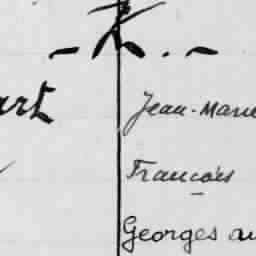 - K. -
art Jean-Marie
François
Georges au